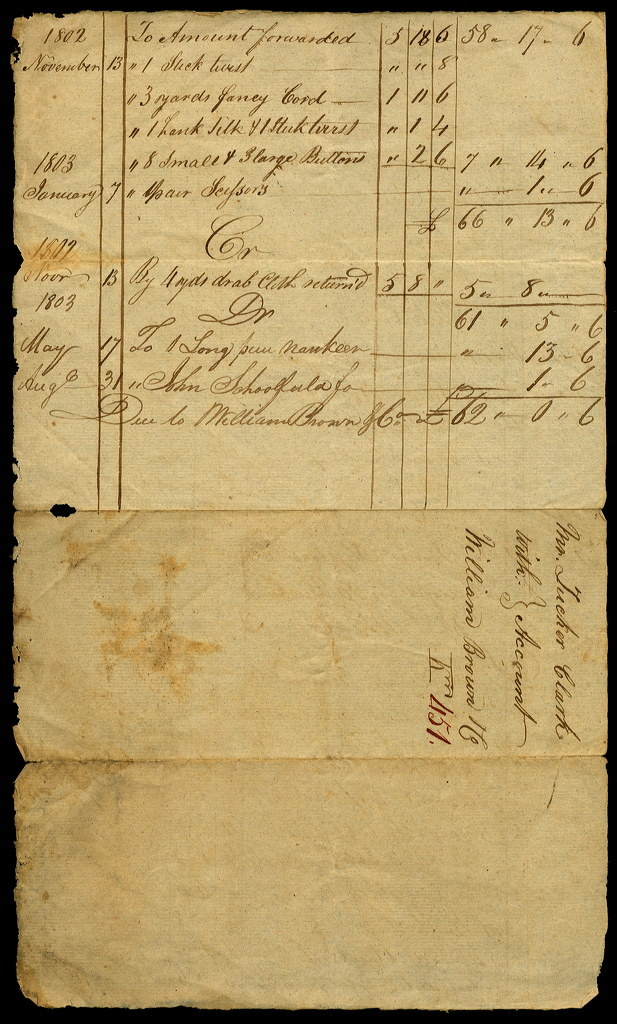 1802 To Amount forwarded 5 18 6 58 " 17 " 6
November 13 " 1 Stick twist " " 8
" 3 yards fancy Cord 1 " 6
" 1 hank Silk & 1 Stick twist " 1 4
1803 " 8 Small & 3 large Buttons " 2 6 7 " 4 " 6
January 7 " 1 pair Scissors " 1 " 6
£ 66 " 13 " 6
Cr
1802
Novr 13 By 4 yds drab Cloth returnd 5 8 " 5 " 8 "
1803 Dr 61 " 5 " 6
May 17 To 1 Long piece nankeen " 13 " 6
Augt 31 " John 1 " 6
Due to William Brown & Co £ 62 " 0 " 6
Mr. Tucker Clark
with } Account
William Brown & Co
451.